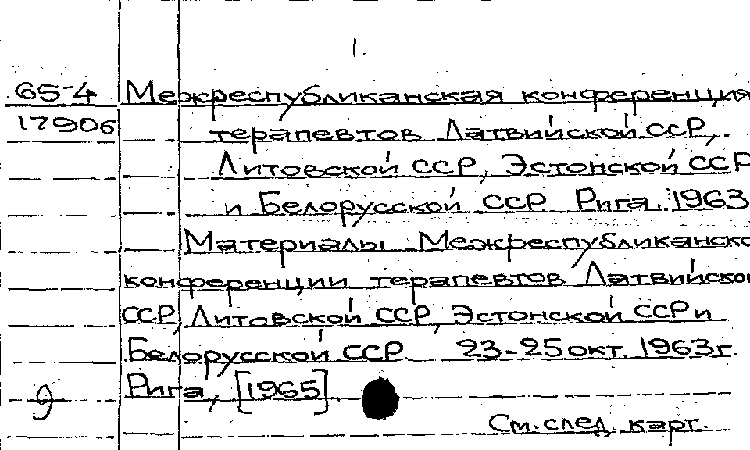 1.
65-4 Межреспубликанская конференция
17906 терапевтов Латвийской ССР,
Литовской ССР, Эстонской ССР
и Белорусской ССР. Рига. 1963
Материалы Межреспубликанско
конференции терапевтов Латвийской
ССР, Литовской ССР, Эстонской ССР и
Белорусской ССР 23-25 окт. 1963 г.
Рига, [1965]
9
См. след. карт.